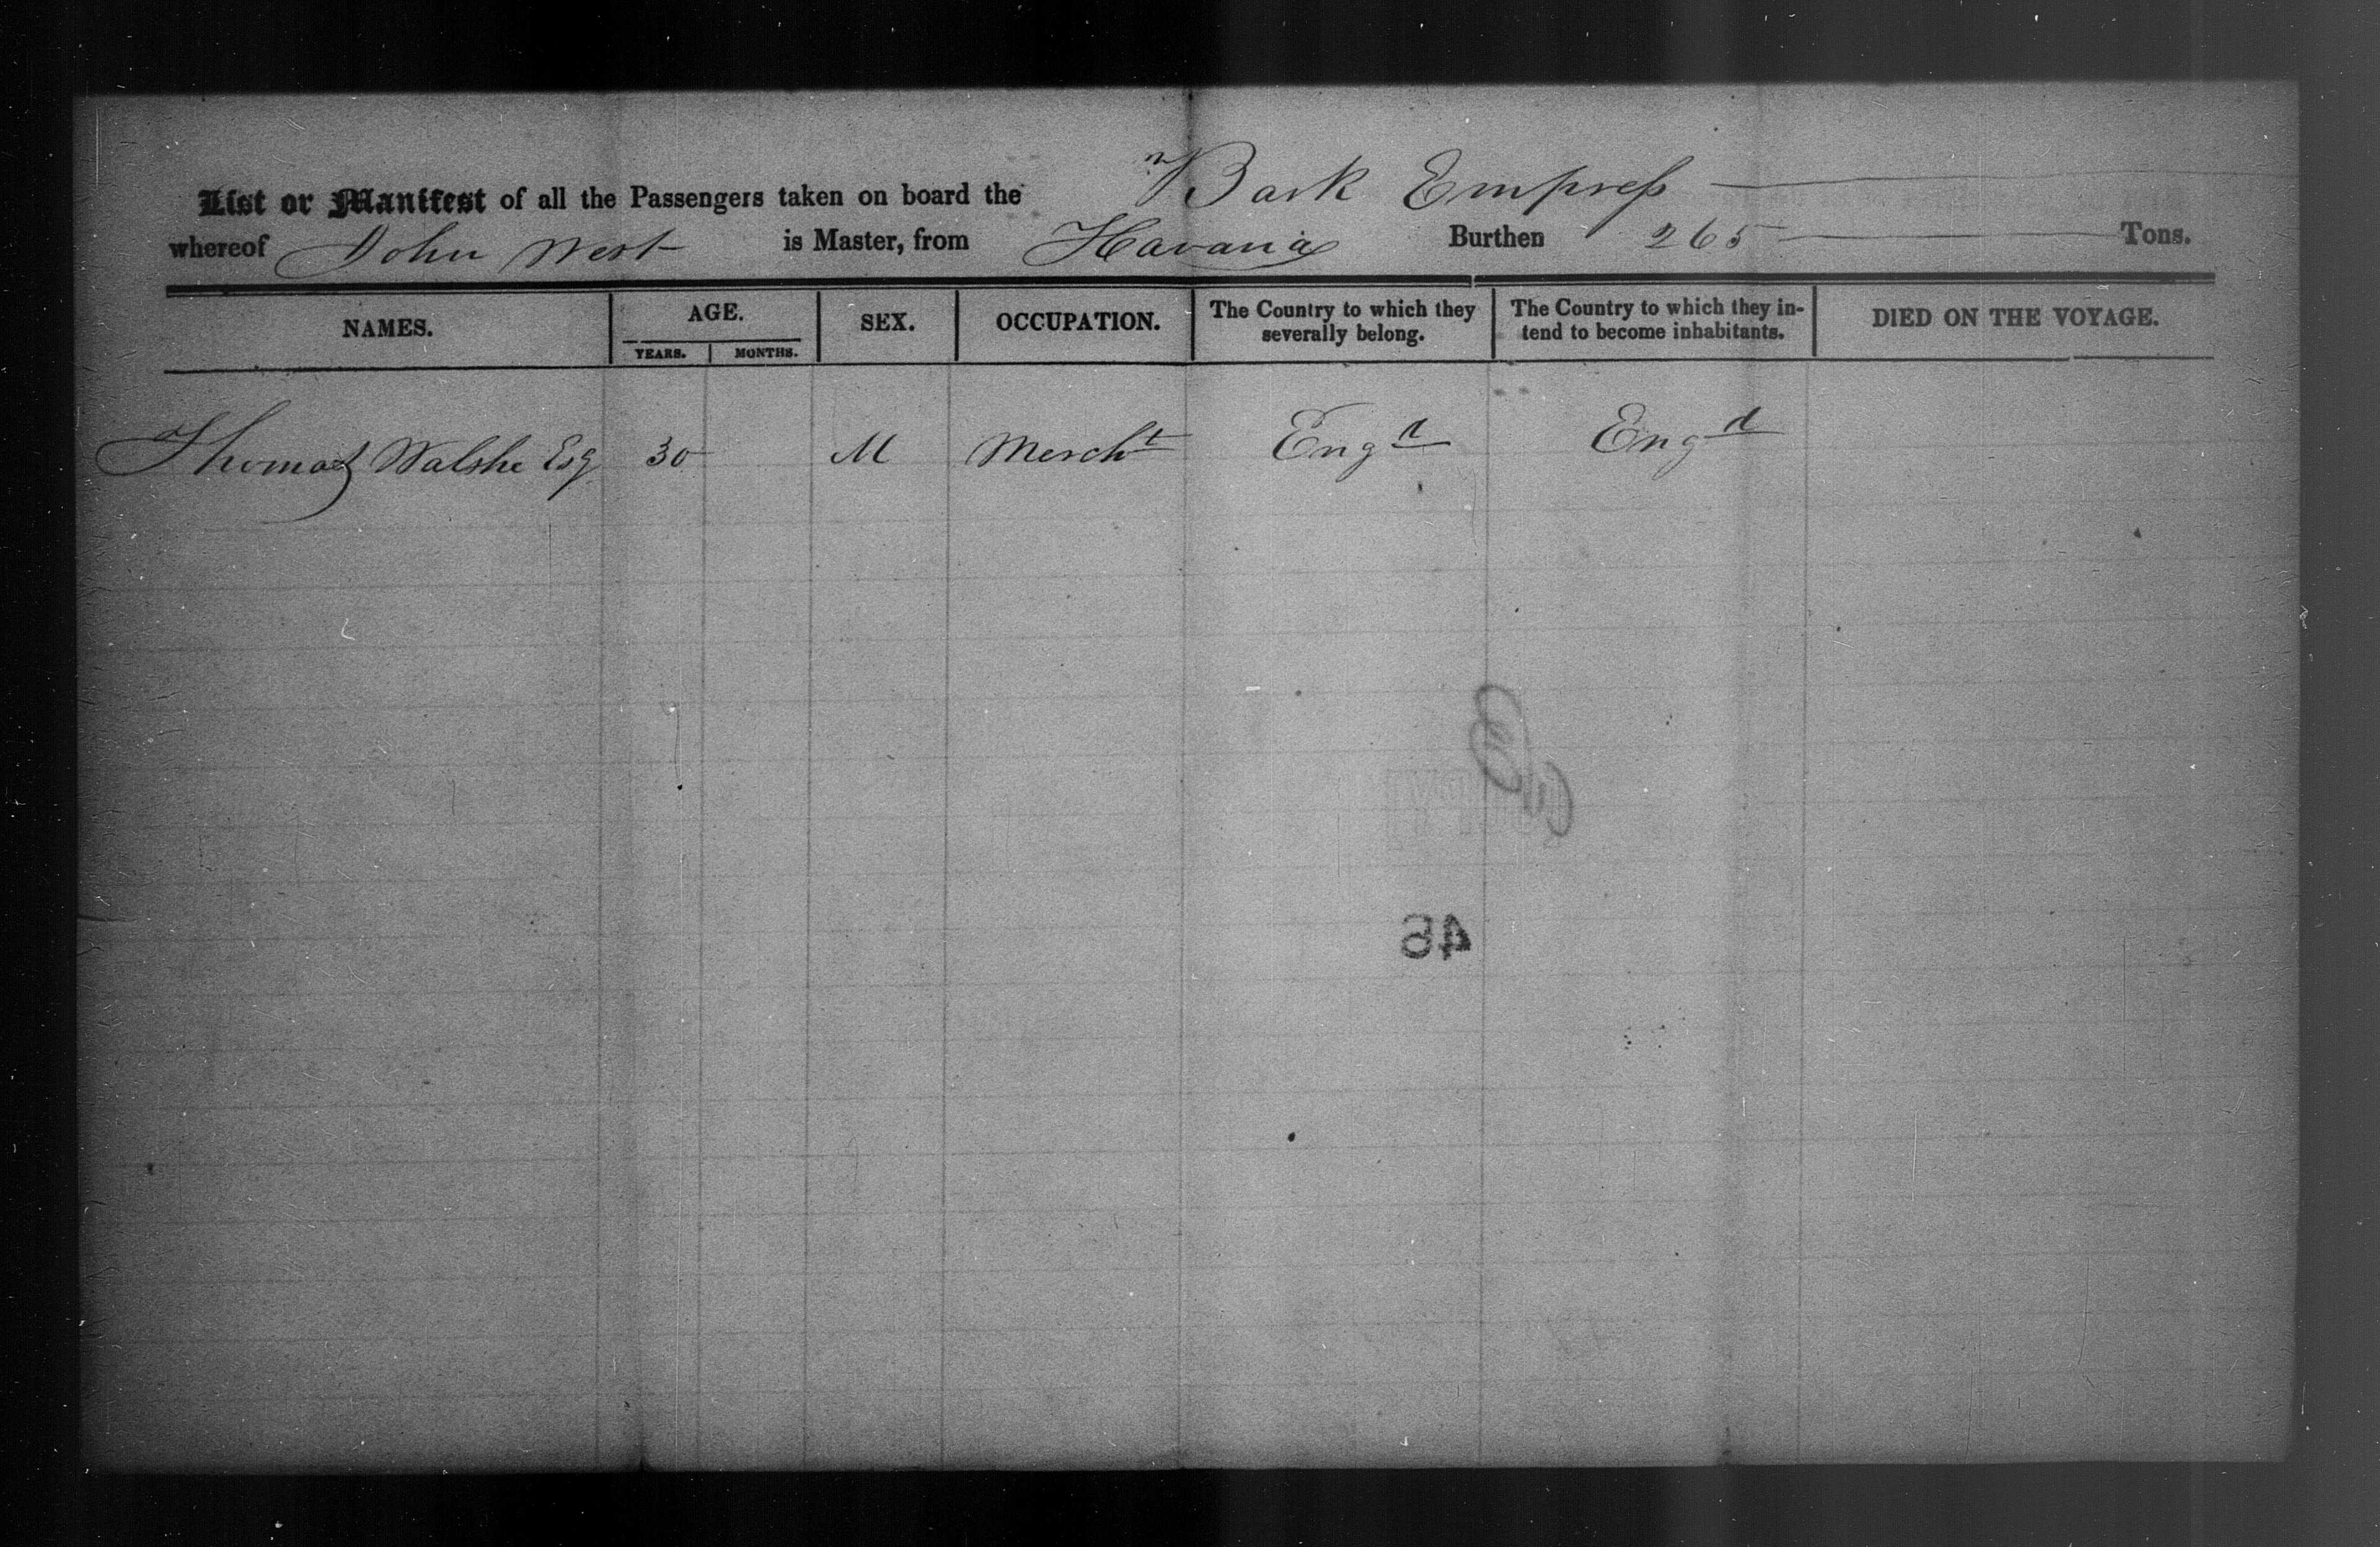 List or Manifest of all the Passengers taken on board the Bark Empress
whereof John West is Master, from Havana Burthen 265 Tons.
NAMES. AGE. SEX. OCCUPATION. The Country to which they severally belong. The Country to which they intend to become inhabitants. DIED ON THE VOYAGE.
YEARS. MONTHS.
Thomas Walshe Esq 30 M Mercht Engd Engd